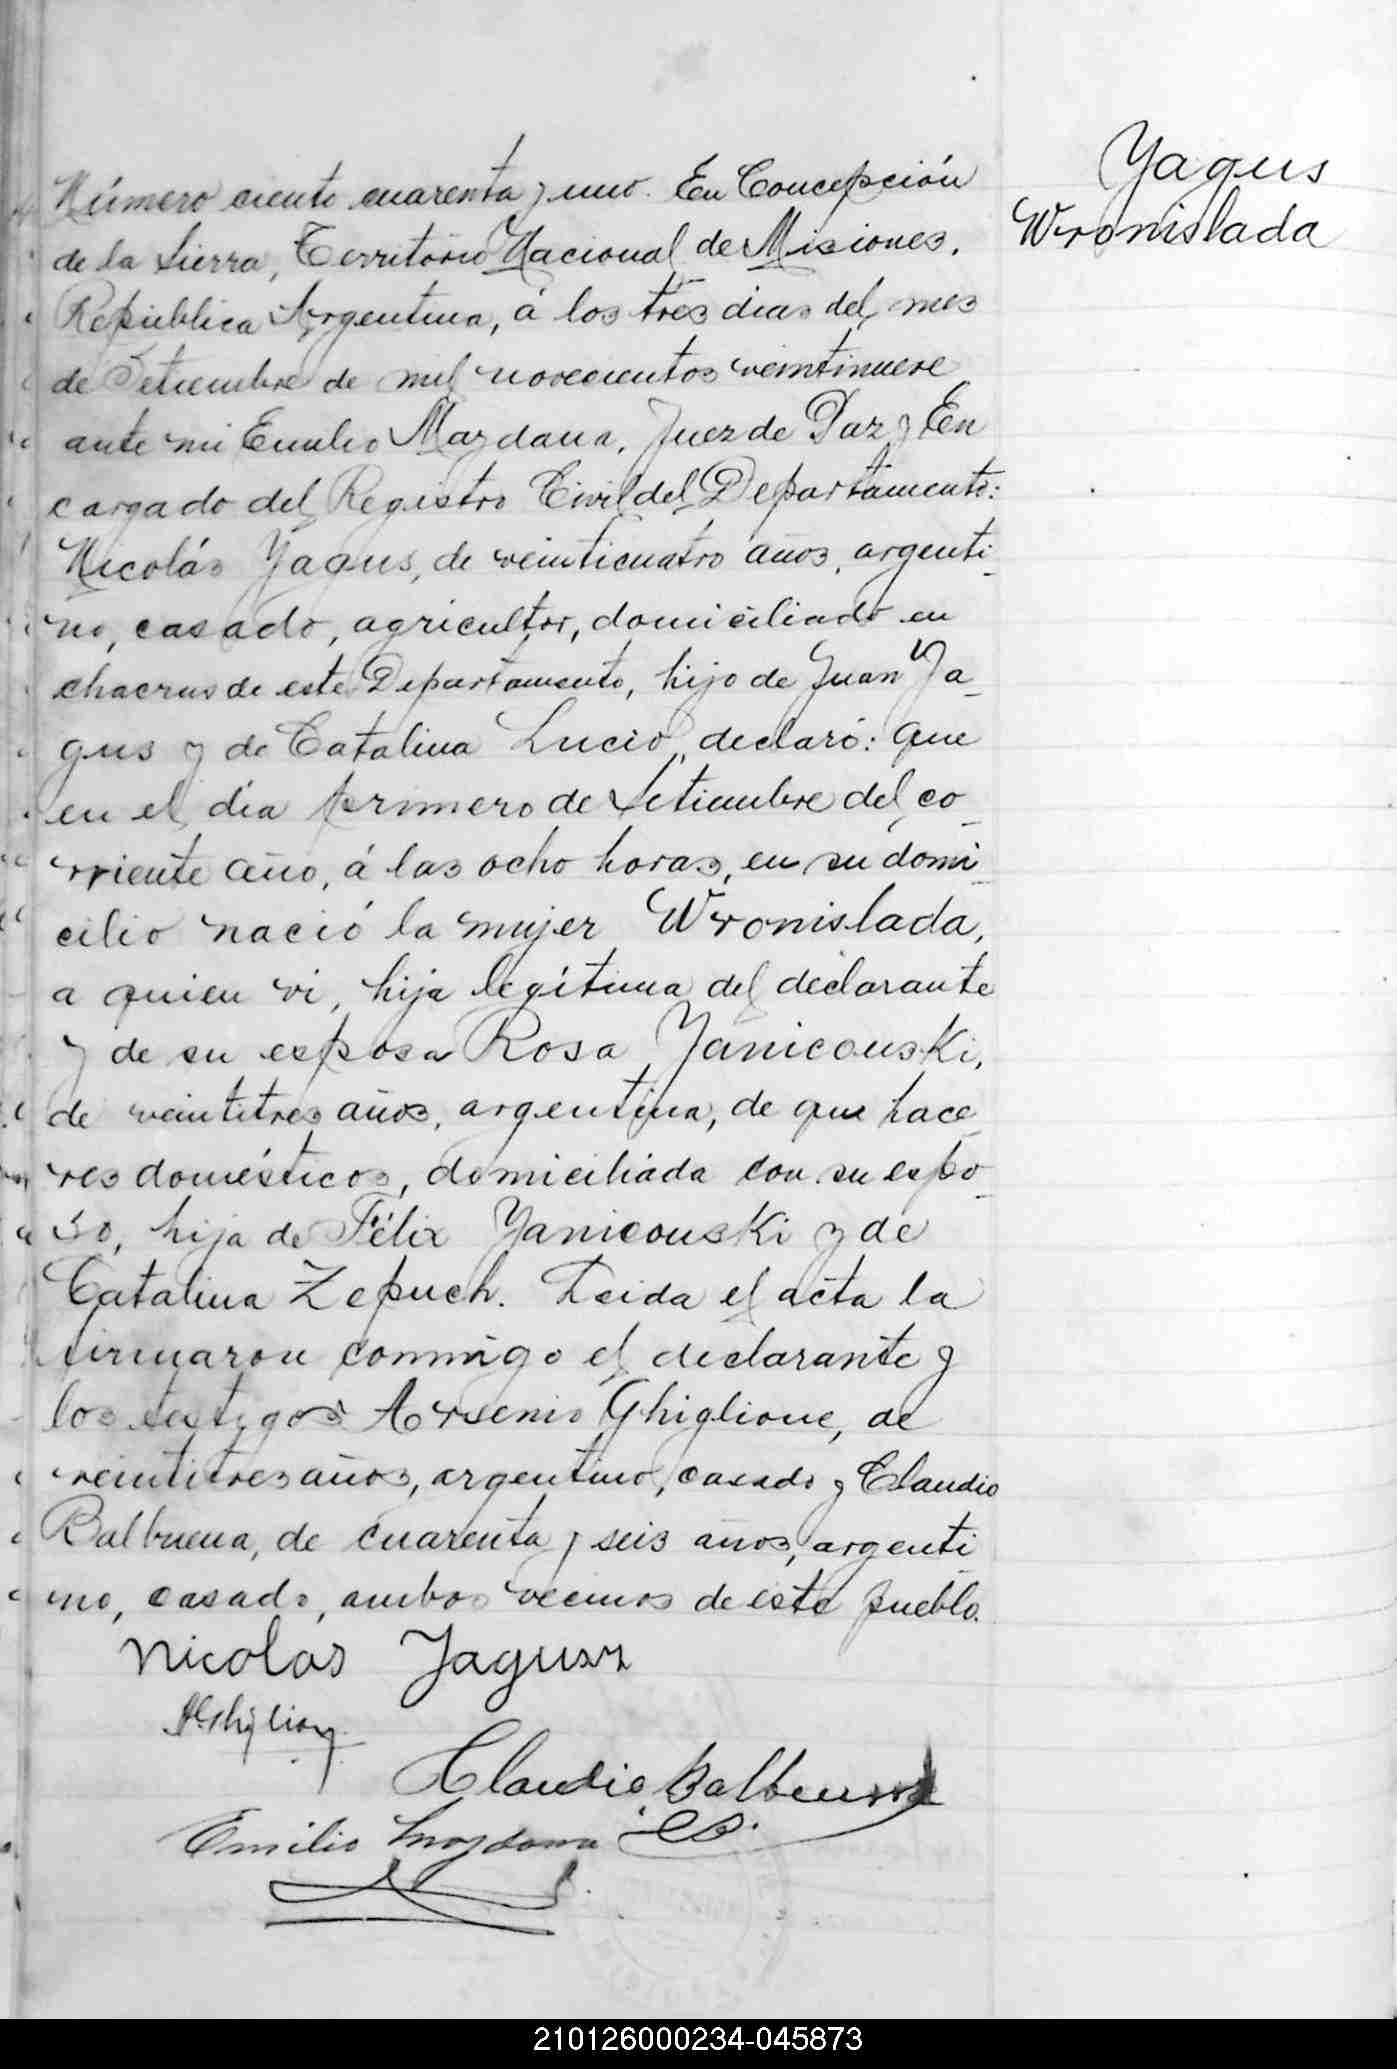 Yagus
Wronislada
Número ciento cuarenta y uno. En Concepción
de la Sierra, Territorio Nacional de Misiones,
República Argentina, á los tres dias del mes
de Setiembre de mil novecientos veintinueve
ante mi Emilio Mazdana, Juez de Paz y En
cargado del Registro Civil del Departamento:
Nicolás Yagus, de veinticuatro años, argenti-
no, casado, agricultor, domiciliado en
chacras de este Departamento, hijo de Juan Ya-
gus y de Catalina Lucio, declaró: que
en el día primero de Setiembre del co-
rriente año, á las ocho horas, en su domi-
cilio nació la mujer Wronislada,
a quien vi, hija legítima del declarante
y de su esposa Rosa Yanicouski,
de veintitres años, argentina, de que hace-
res domésticos, domiciliada con su espo-
so, hija de Félix Yanicouski y de
Catalina Zepuch. Leida el acta la
firmaron conmigo el declarante y
los testigos Arsenio Ghiglione, de
veintitres años, argentino, casado y Claudio
Balbuena, de cuarenta y seis años, argenti-
no, casado, ambos vecinos de este pueblo.
Nicolas Jagusz
AGhiglione
Claudio Balbuena
Emilio
210126000234-045873